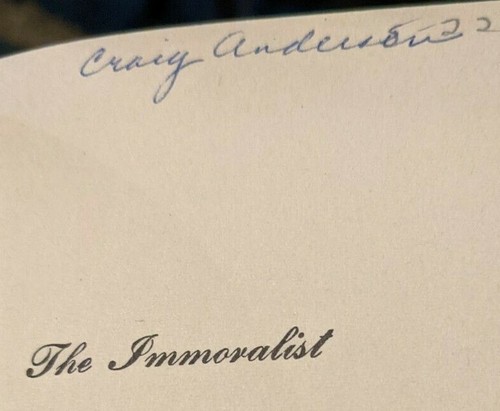 Craig Anderson
The Immoralist